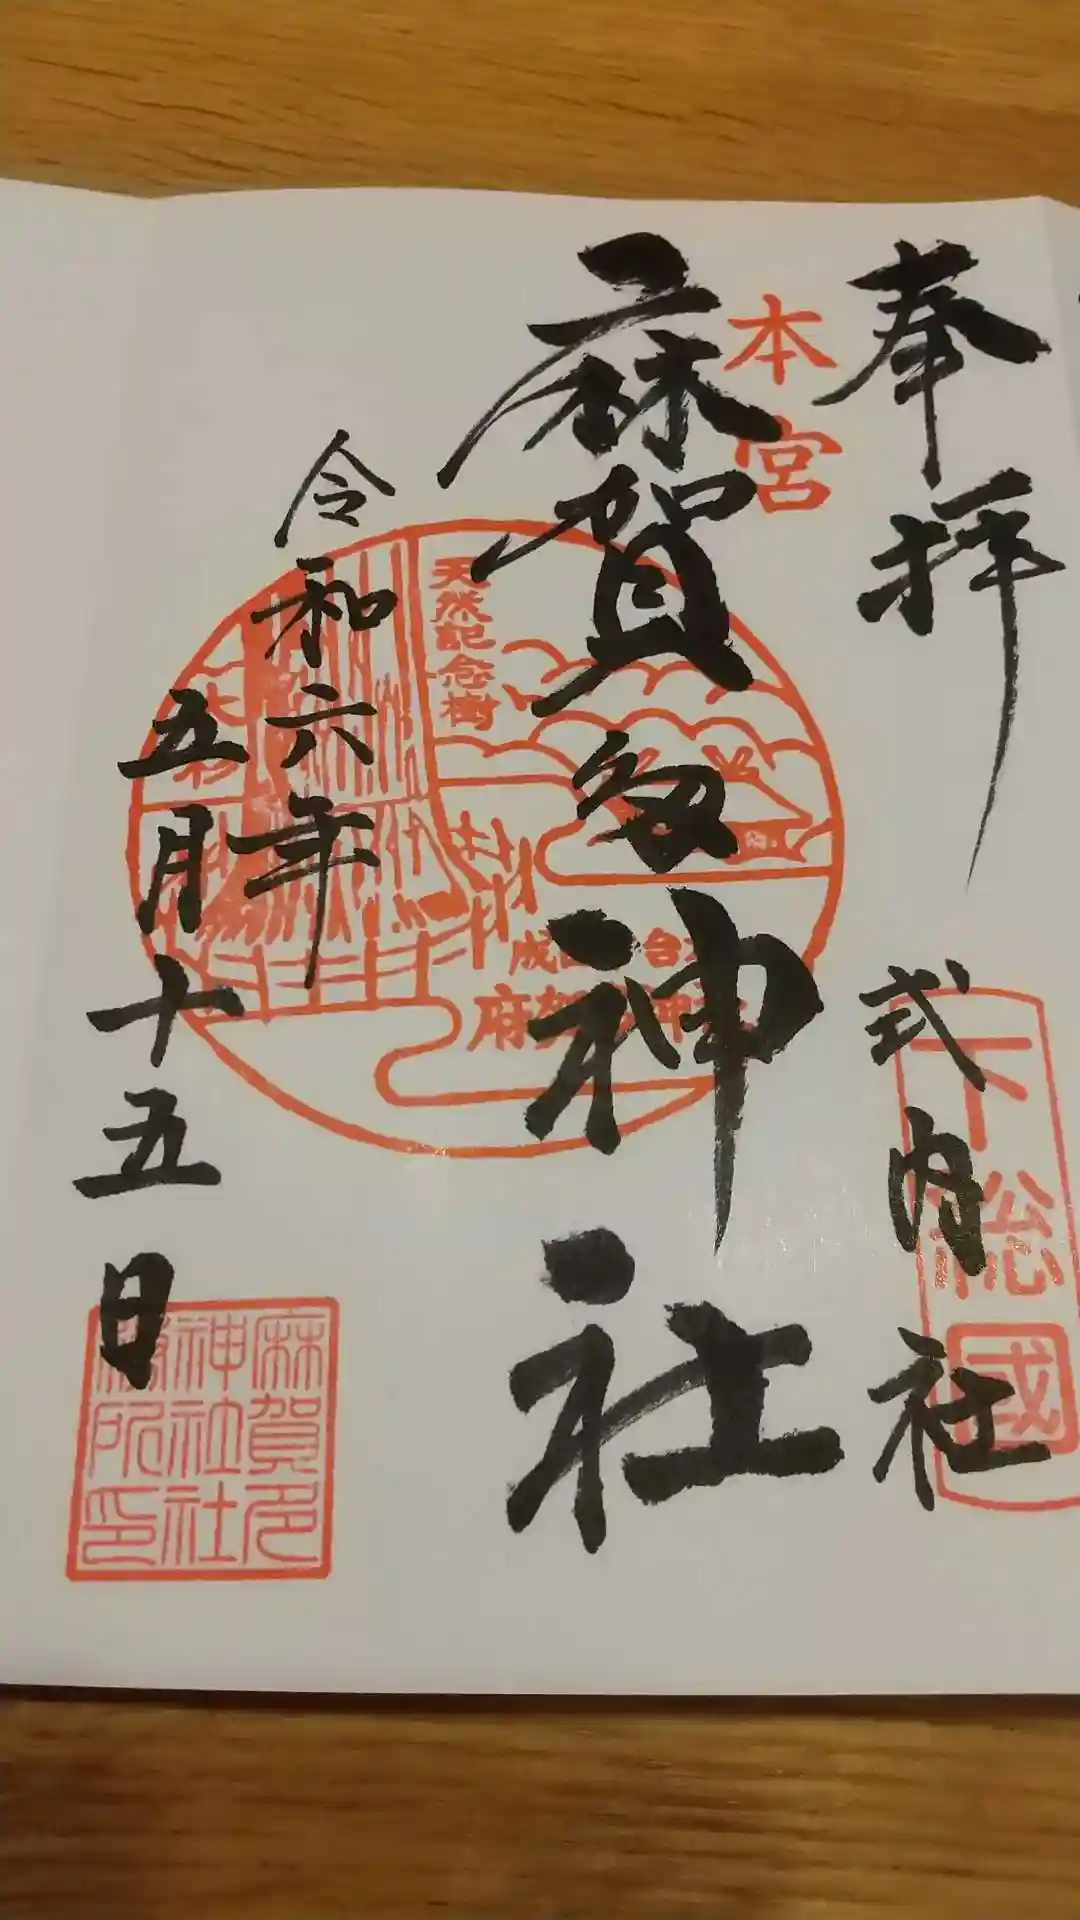 奉拝
式内社
下総國
本宮
麻賀多神社
天然記念樹
大杉
令和六年
五月十五日
麻賀多
神社社
務所印